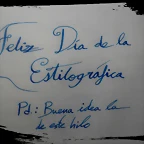 Feliz Día de la
Estilográfica
Pd: Buena idea la
de este hilo